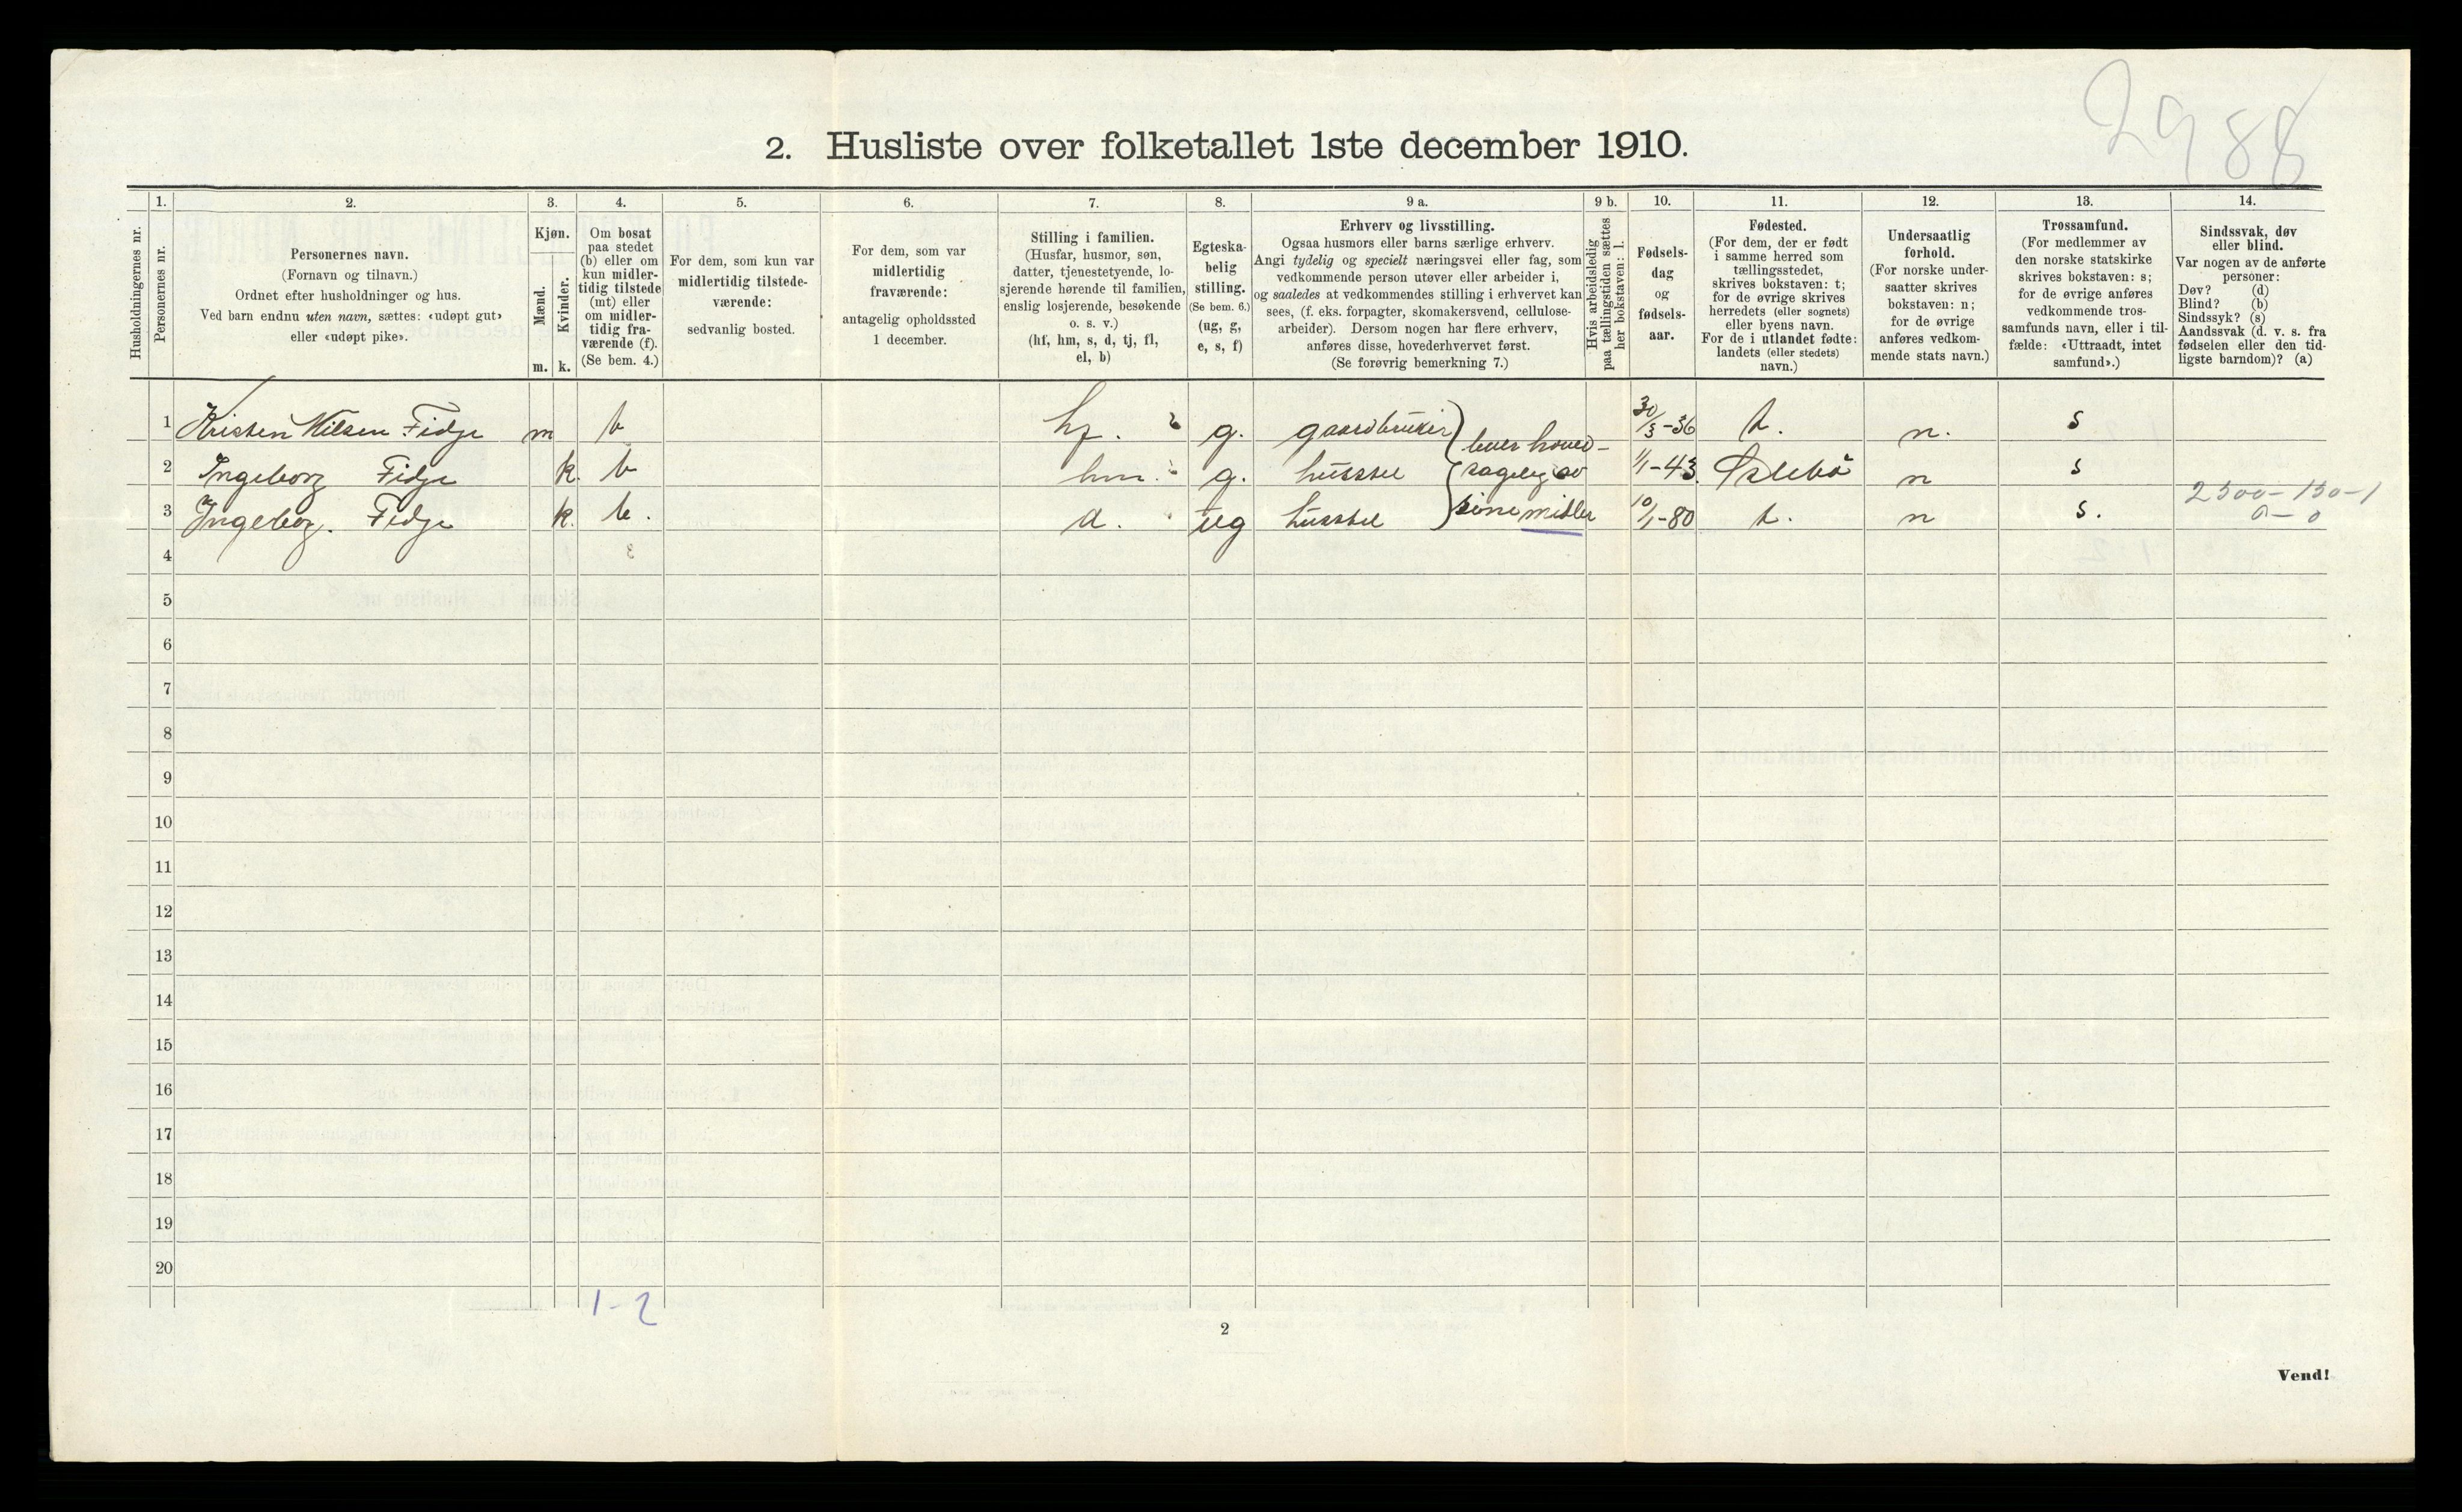 2988
2. Husliste over folketallet 1ste december 1910.
Husholdningernes nr.
1.
Personernes nr.
2.
Personernes navn.
(Fornavn og tilnavn.)
Ordnet efter husholdninger og hus.
Ved barn endnu uten navn, sættes: «udøpt gut»
eller «udøpt pike».
3.
Kjøn.
Mænd.
Kvinder.
m. k.
4.
Om bosat
paa stedet
(b) eller om
kun midler-
tidig tilstede
(mt) eller
om midler-
tidig fra-
værende (f).
(Se bem. 4.)
5.
For dem, som kun var
midlertidig tilstede-
værende:
sedvanlig bosted.
6.
For dem, som var
midlertidig
fraværende:
antagelig opholdssted
1 december.
7.
Stilling i familien.
(Husfar, husmor, søn,
datter, tjenestetyende, lo-
sjerende hørende til familien,
enslig losjerende, besøkende
o. s. v.)
(hf, hm, s, d, tj, fl,
el, b)
8.
Egteska-
belig
stilling.
(Se bem. 6.)
(ug, g,
e, s, f)
9 a.
Erhverv og livsstilling.
Ogsaa husmors eller barns særlige erhverv.
Angi tydelig og specielt næringsvei eller fag, som
vedkommende person utøver eller arbeider i,
og saaledes at vedkommendes stilling i erhvervet kan
sees, (f. eks. forpagter, skomakersvend, cellulose-
arbeider). Dersom nogen har flere erhverv,
anføres disse, hovederhvervet først.
(Se forøvrig bemerkning 7.)
9 b.
Hvis arbeidsledig
paa tællingstiden sættes
her bokstaven: l.
10.
Fødsels-
dag
og
fødsels-
aar.
11.
Fødested.
(For dem, der er født
i samme herred som
tællingsstedet,
skrives bokstaven: t;
for de øvrige skrives
herredets (eller sognets)
eller byens navn.
For de i utlandet fødte:
landets (eller stedets)
navn.)
12.
Undersaatlig
forhold.
(For norske under-
saatter skrives
bokstaven: n;
for de øvrige
anføres vedkom-
mende stats navn.)
13.
Trossamfund.
(For medlemmer av
den norske statskirke
skrives bokstaven: s;
for de øvrige anføres
vedkommende tros-
samfunds navn, eller i til-
fælde: «Uttraadt, intet
samfund».)
14.
Sindssvak, døv
eller blind.
Var nogen av de anførte
personer:
Døv? (d)
Blind? (b)
Sindssyk? (s)
Aandssvak (d. v. s. fra
fødselen eller den tid-
ligste barndom)? (a)
1 Kristen Nilsen Fidje m b hf. g. gaardbruker lever hoved- 30/3-36 t. n. s
2 Ingeborg Fidje k. b hm. g. husstel sagelig av 1/1-43. Øslebø n s
3 Ingeborg. Fidje k. b. d. ug husstel sine midler 10/1-80 t. n s. 2500-150-1
0-0
4 3
5
6
7
8
9
10
11
12
13
14
15
16
17
18
19
20
1-2
2
Vend!